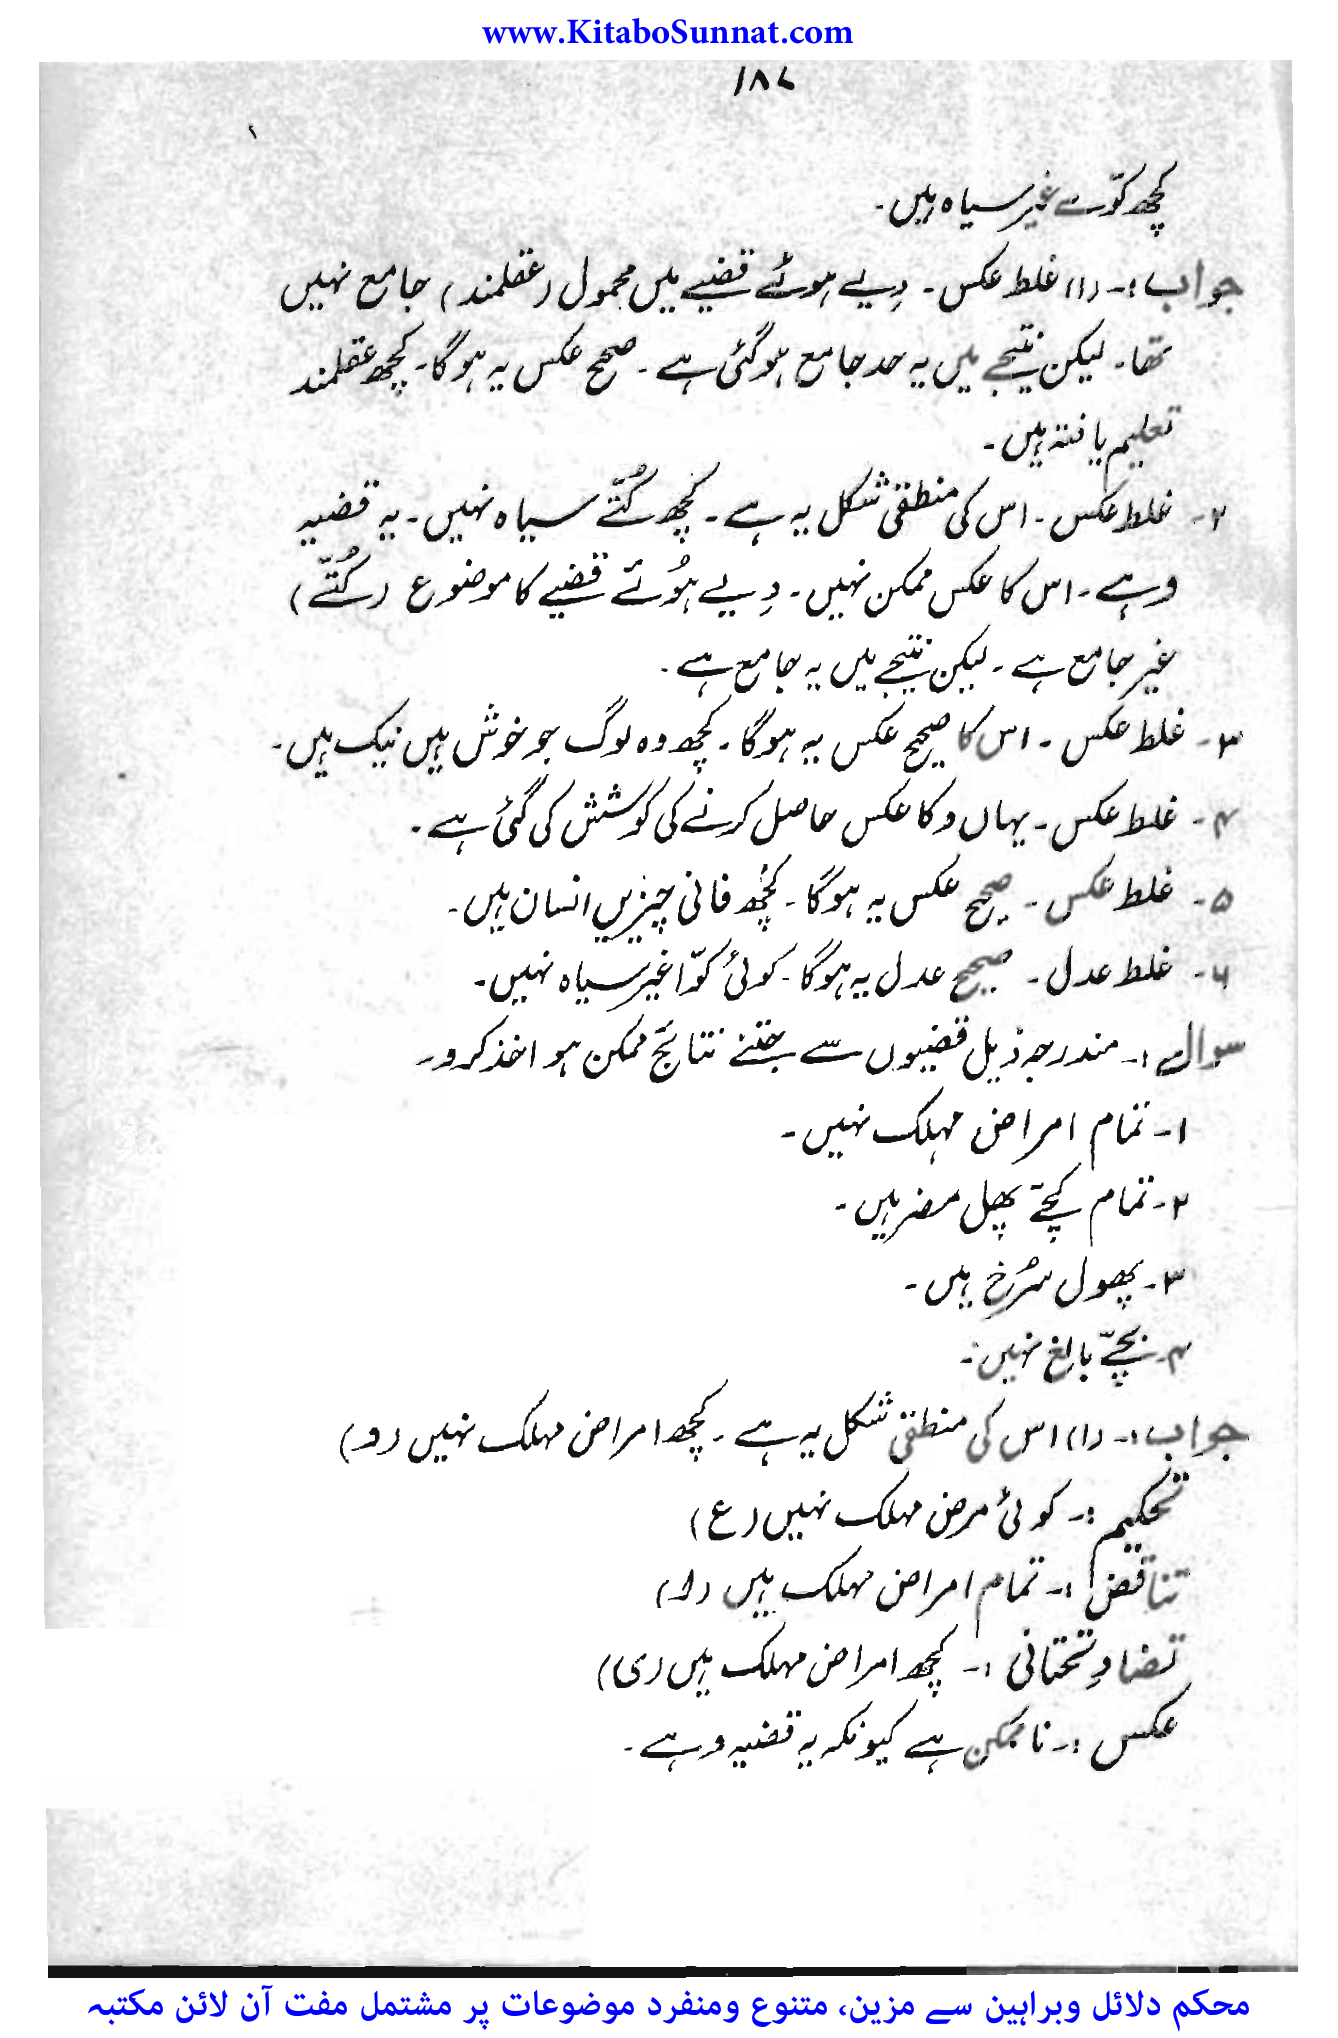 www.KitaboSunnat.com
۱۸۷
کچھ کوّے غیر سیاہ ہیں۔
جواب :۔ (۱) غلط عکس۔ دِیے ہوئے قضیے میں محمول (عقلمند) جامع نہیں
تھا۔ لیکن نتیجے میں یہ حد جامع ہوگئی ہے۔ صحیح عکس یہ ہوگا۔ کچھ عقلمند
تعلیم یافتہ ہیں۔
۲۔ غلط عکس۔ اس کی منطقی شکل یہ ہے۔ کچھ کُتّے سیاہ نہیں۔ یہ قضیہ
و ہے۔ اس کا عکس ممکن نہیں۔ دِیے ہُوئے قضیے کا موضوع (کُتّے)
غیر جامع ہے۔ لیکن نتیجے میں یہ جامع ہے۔
۳۔ غلط عکس۔ اس کا صحیح عکس یہ ہوگا۔ کچھ وہ لوگ جو خوش ہیں نیک ہیں۔
۴۔ غلط عکس۔ یہاں و کا عکس حاصل کرنے کی کوشش کی گئی ہے۔
۵۔ غلط عکس۔ صحیح عکس یہ ہوگا۔ کچھ فانی چیزیں انسان ہیں۔
۶۔ غلط عدل۔ صحیح عدل یہ ہوگا۔ کوئی کوّا غیر سیاہ نہیں۔
سوال :۔ مندرجہ ذیل قضیوں سے جتنے نتائج ممکن ہو اخذ کرو۔
۱۔ تمام امراض مہلک نہیں۔
۲۔ تمام کچّے پھل مضر ہیں۔
۳۔ پھول سُرخ ہیں۔
۴۔ بچّے بالغ نہیں۔
جواب :۔ (۱) اس کی منطقی شکل یہ ہے۔ کچھ امراض مہلک نہیں (و)
تحکیم :۔ کوئی مرض مہلک نہیں (ع)
تناقض :۔ تمام امراض مہلک ہیں (ا)
تضادِ تحتانی :۔ کچھ امراض مہلک ہیں (ی)
عکس :۔ ناممکن ہے کیونکہ یہ قضیہ و ہے۔
محکم دلائل وبراہین سے مزین، متنوع ومنفرد موضوعات پر مشتمل مفت آن لائن مکتبہ